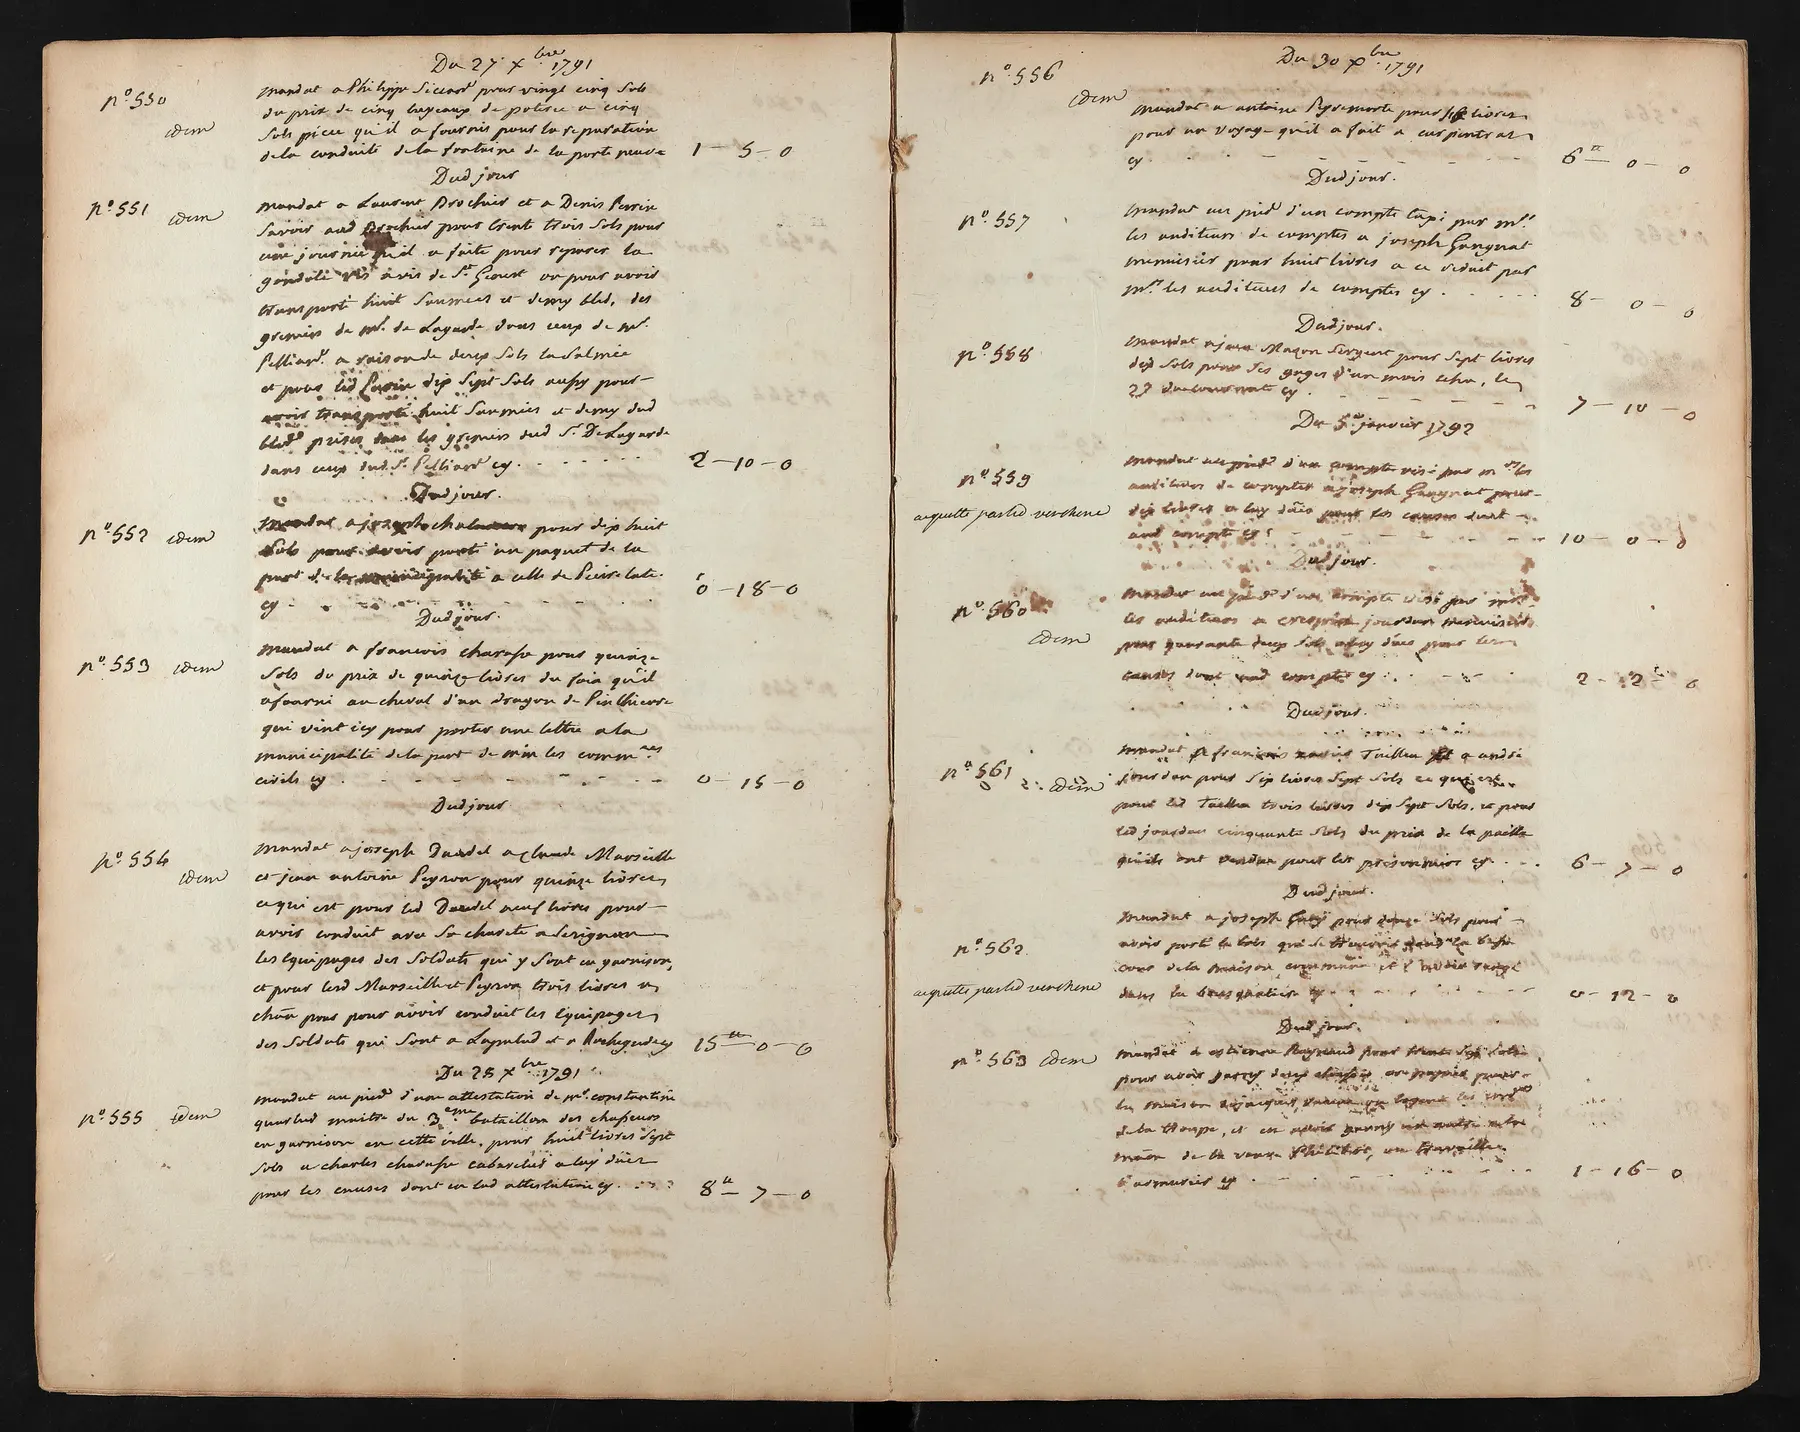 Du 27 Xbre 1791
n.º 550
idem
mandat a Philipp Siccard pour vingt cinq sols
du prix de cinq tuyeaux de poterie a cinq
sols piece qu'il a fournis pour la reparation
de la conduite de la fontaine de la porte neuve
1 - 5 - 0
Dud jour
n.º 551
idem
mandat a Laurent Brochier et a Denis Perrin
savoir aud Brochier pour trent trois sols pour
une journée qu'il a faite pour reparer la
gondole vis avis de St Geoust ou pour avoir
transporté huit saumées et demy bled, des
greniers de mr. de Lagarde dans ceux de mr.
Pelliard. a raison de deux sols la salmée
et pour led Perrin dix sept sols aussy pour
avoir transporté huit saumées et demy dud
bled prises dans les greniers dud Sr. De Lagarde
dans ceux dud Sr. Pelliard cy
2 - 10 - 0
Dud jour.
n.º 552
idem
mandat a joseph pour dix huit
sols pour avoir porté un paquet de la
part de la municipalité a celle de Pierrelate.
cy
0 - 18 - 0
Dud jour.
n.º 553
idem
mandat a francois charasse pour quinze
sols du prix de quinze livres du foin qu'il
a fourni au cheval d'un dragon de Pinthievre
qui vint icy pour porter une lettre a la
municipalité de la part de mrs les commres
civils cy
0 - 15 - 0
Dud jour
n.º 554
idem
mandat a joseph Daudel a claude Marseille
et jean antoine Peyron pour quinze livres
ce qui est pour led Daudel neuf livres pour
avoir conduit avec sa charete a Serignan
les equipages des soldats qui y sont en garnison,
et pour lesd Marseille et Peyron trois livres a
chãn pour pour avoir conduit les equipages
des soldats qui sont a Lapalud et a Rochegude cy
15 tt 0 - 0
Du 28 Xbre 1791
n.º 555
idem
mandat au pied d'une attestation de mr. constantin
quartud maitre du 3eme bataillon des chasseurs
en garnison en cette ville, pour huit livres sept
sols a charles charasse cabaretier a luy dües
pour les causes dont en lad attestation cy
8 tt - 7 - 0
Du 30 Xbre 1791
n.º 556
idem
mandat a antoine Peyremorte pour six livres
pour un voyage qu'il a fait a carpentras
cy
6 tt - 0 - 0
Dud jour.
n.º 557
mandat au pied d'un compte taxé par mrs.
les auditeurs de comptes a joseph Gangnat
menuisier pour huit livres a ce reduit par
mrs les auditeurs de comptes cy
8 - 0 - 0
Dud jour.
n.º 558
mandat a jean Mazon sergent pour sept livres
dix sols pour ses gages d'un mois echu, le
27 du courant cy
7 - 10 - 0
Du 5e. janvier 1792
n.º 559
aquitté par led verchene
mandat au pied d'un compte visé par mrs les
auditeurs de comptes a joseph Gangnat pour
dix livres a luy dües pour les causes dont
aud compte cy
10 - 0 - 0
Dud jour.
n.º 560
idem
mandat au pied d'un compte visé par mrs
les auditeurs a crespin jourdan menuisier
pour quarante deux sols a luy dües pour les
causes dont aud compte cy
2 - 2 - 0
Dud jour.
n.º 561
idem
mandat a francois xavier Taillen et a andré
jourdan pour six livres sept sols ce qui est
pour led Taillen trois livres dix sept sols, et pour
led jourdan cinquante sols du prix de la paille
quils ont vendue pour les prisonniers cy
6 - 7 - 0
Dud jour.
n.º 562
aquitté par led verchene
mandat a joseph pour douze sols pour
avoir porté le bois qui se trouvoit dans la basse
cour de la maison commune et l'avoir rangé
dans la cy
0 - 12 - 0
Dud jour.
n.º 563
idem
mandat a estienne Raynaud pour trent six sols
pour avoir garny deux chassis au papier pour
la maison ou logent les
de la troupe, et en avoir garny un autre
de la veuve Philibert, ou travaille
l'armurier cy
1 - 16 - 0